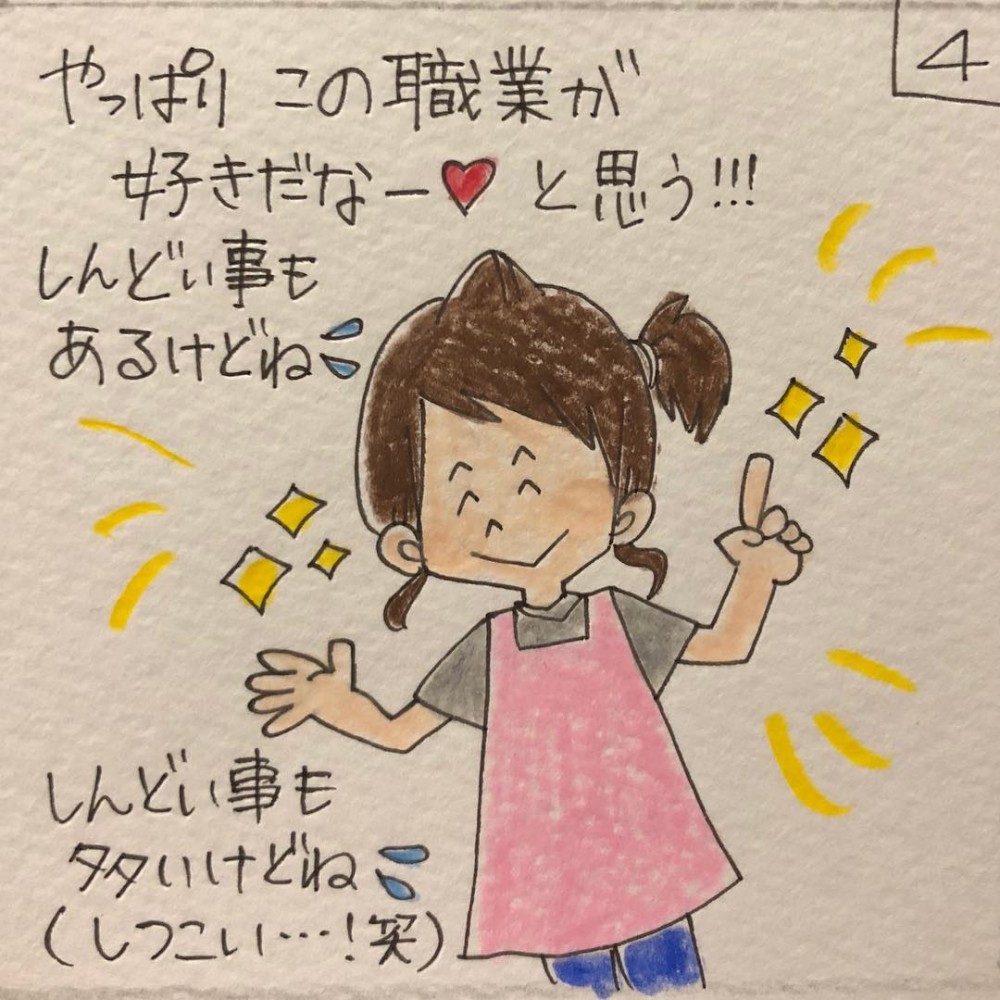 4
やっぱり この職業が
好きだなー♥ と思う!!!
しんどい事も
あるけどね
しんどい事も
多いけどね
(しつこい…!笑)